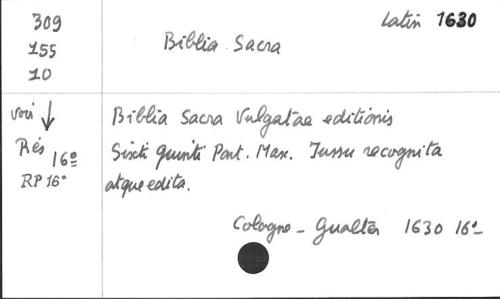 309
155
10
Biblia Sacra
Latin 1630
voir ↓
Rés 16º
RP 16º
Biblia Sacra Vulgatae editionis
Sixti Quinti Pont. Max. Jussu recognita
atque edita.
Cologne - Gualter 1630 16º